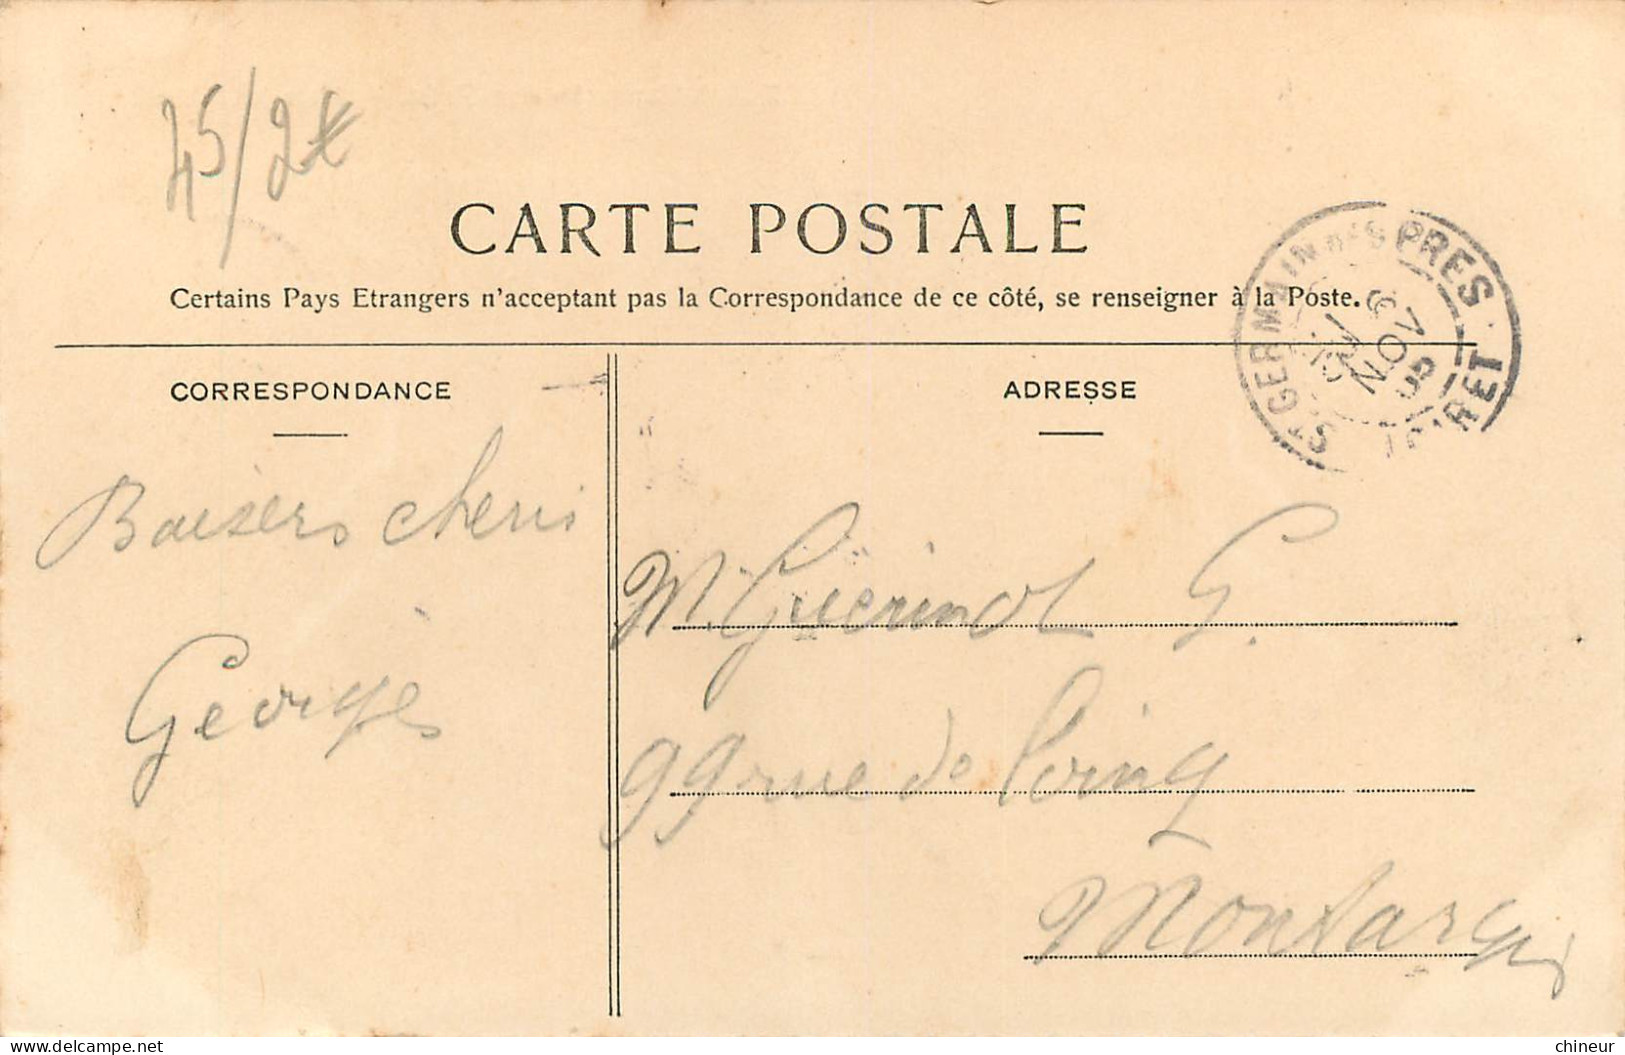 45/2€
CARTE POSTALE
Certains Pays Etrangers n'acceptant pas la Correspondance de ce côté, se renseigner à la Poste.
ST GERMAIN DES PRES
LOIRET
6
NOV
CORRESPONDANCE
ADRESSE
Baisers cheris
Georges
M. Guerinot G.
99 rue de Loing
Montargis
delcampe.net
chineur